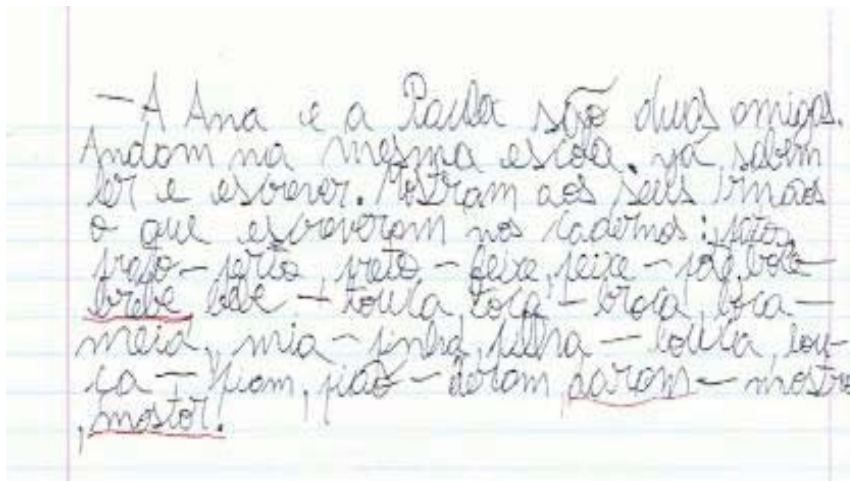 — A Ana e a Paula são duas amigas.
Andam na mesma escola. yá sabem
ler e escrever. Mostram aos seus irmãos
o que escreveram nos cadernos: pato,
prato – perto, preto – feixe, peixe – pote, bote –
brebe, bebe – touca, toca – broca, boca –
meia, mia – pinha, pilha – louca, lou-
ça – piam, pião – deram, param – mostro
, mostor.